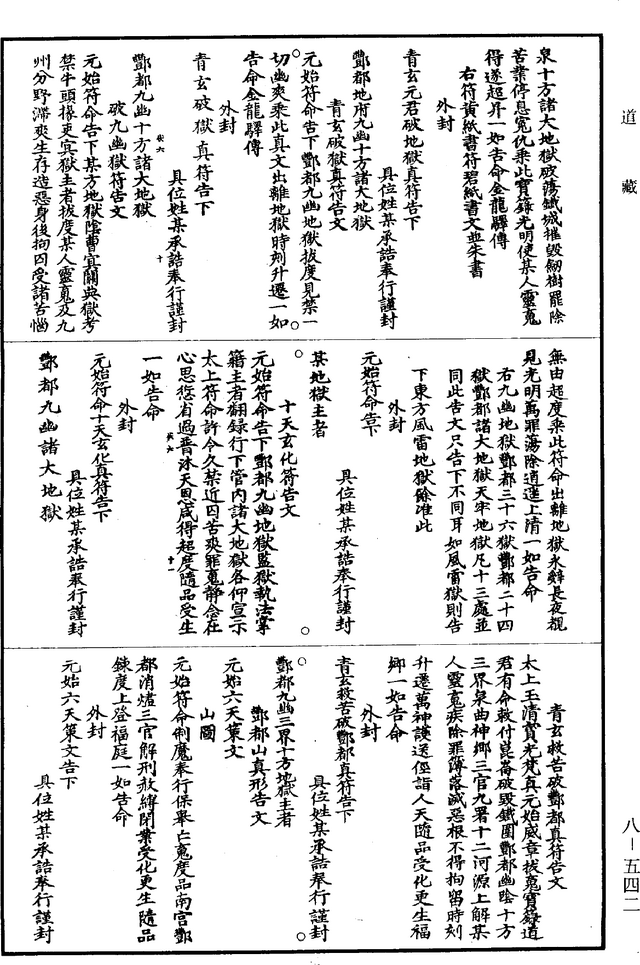 道藏
泉十方諸大地獄破蕩鐵城摧毀劒樹罷除
苦業停息寃仇乘此寶籙光明使某人靈魂
得遂超昇一如告命金龍驛傳
右符黃紙書符碧紙書文並朱書
外封
青玄元君破地獄真符告下
具位姓某承誥奉行謹封
酆都地府九幽十方諸大地獄
青玄破獄真符告文
元始符命告下酆都九幽地獄拔度見禁一
切幽爽乘此真文出離地獄時刻升遷一如
告命金龍驛傳
外封
青玄破獄真符告下
具位姓某承誥奉行謹封
酆都九幽十方諸大地獄
破九幽獄符告文
元始符命告下某方地獄陰曹宜關典獄考
禁牛頭掾吏冥獄主者拔度某人靈魂及九
州分野滯爽生存造惡身後拘囚受諸苦惱
無由超度乘此符命出離地獄永辭長夜覩
見光明萬罪蕩除逍遥上清一如告命
右九幽地獄酆都三十六獄酆都二十四
獄酆都諸大地獄天牢地獄凡十三處並
同此告文只告下不同耳如風雷獄則告
下東方風雷地獄餘准此
外封
元始符命告下
具位姓某承誥奉行謹封
某地獄主者
十天玄化符告文
元始符命告下酆都九幽地獄監獄執法掌
籍主者翻錄行下管內諸大地獄各仰宣示
太上符命許令久禁近囚苦爽罪魂靜念在
心思愆省過普沐天恩咸得超度隨品受生
一如告命
外封
元始符命十天玄化真符告下
具位姓某承誥奉行謹封
酆都九幽諸大地獄
青玄救苦破酆都真符告文
太上玉清寶光梵真元始威章拔魂寶籙道
君有命敕付崑崙破毀鐵圍酆都幽陰十方
三界泉曲神鄉三官九署十二河源上解某
人靈魂疾除罪簿落滅惡根不得拘留時刻
升遷萬神護送徑詣人天隨品受化更生福
鄉一如告命
外封
青玄救苦破酆都真符告下
具位姓某承誥奉行謹封
酆都九幽三界十方地獄主者
酆都山真形告文
元始六天策文
山圖
元始符命制魔奉行保舉亡魂度品南宮酆
都消爐三官解刑赦縛閉業受化更生隨品
鍊度上登福庭一如告命
外封
元始六天策文告下
具位姓某承誥奉行謹封
八－五四二